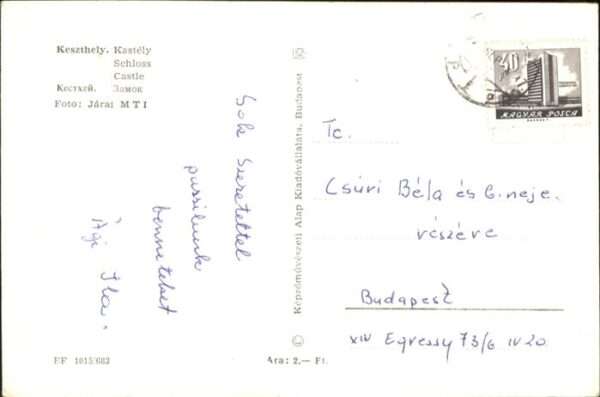 Keszthely. Kastély
Schloss
Castle
Кестхей. Замок
Foto: Járai MTI
Sok szeretettel
puszilunk
benneteket
Ági Ica.
Képzőművészeti Alap Kiadóvállalata, Budapest
40
MAGYAR POSTA
Tc.
Csúri Béla és b. neje.
részére
Budapest
XIV Egressy 73/b IV 20.
EF 1015/683
Ara: 2.— Ft.